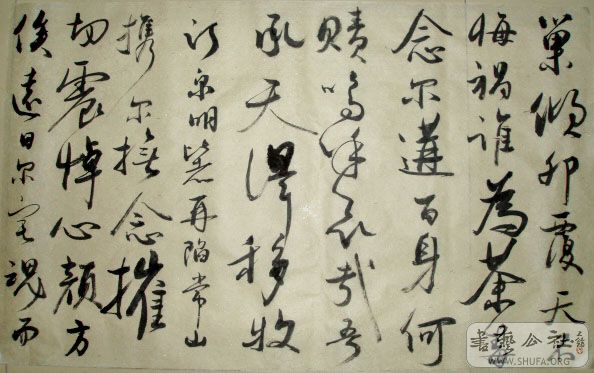 巢傾卵覆天不
悔禍誰為荼毒
念尔遘百身何
贖嗚呼哀哉吾
承天澤移牧
河泉明比者再陷常山
攜尔撫念摧
切震悼心顏方
俟遠日尔宅魂而
書藝公社
WWW.SHUFA.ORG